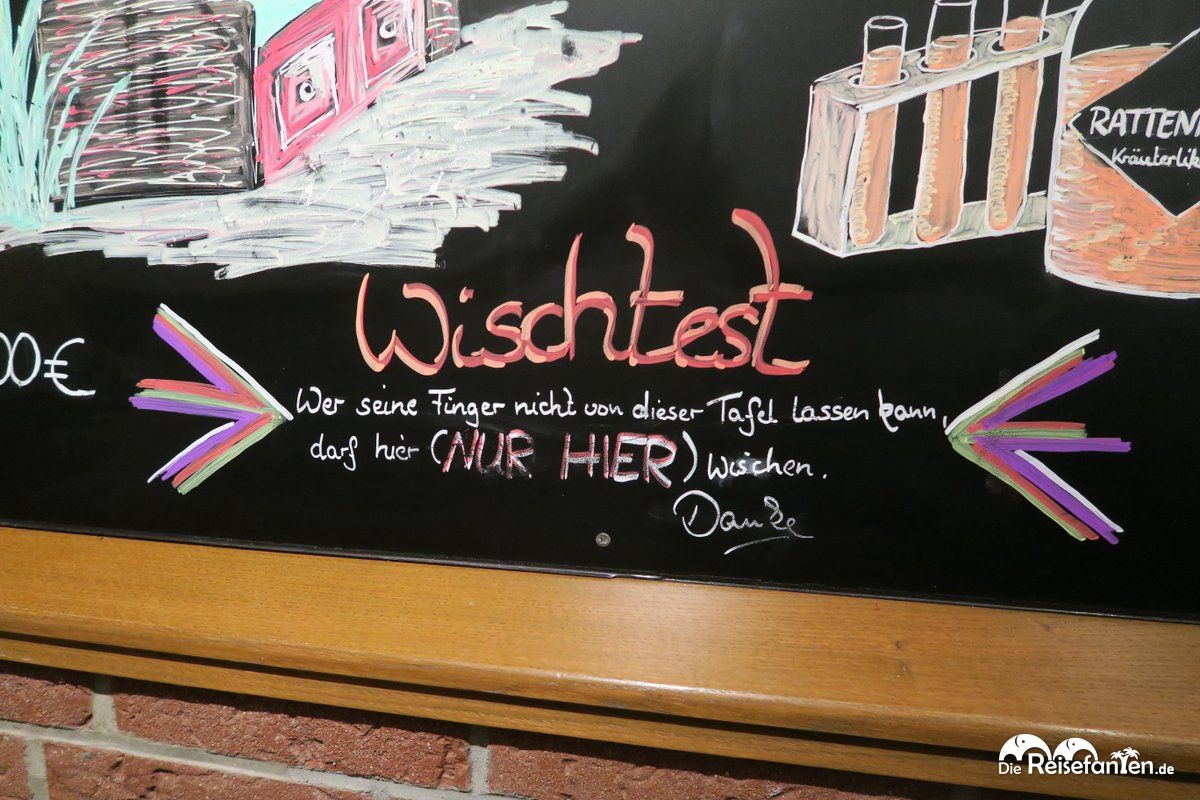 RATTEN
Kräuterlik
00€
Wischtest
Wer seine Finger nicht von dieser Tafel lassen kann,
darf hier (NUR HIER) wischen.
Danke
Die Reisefanten.de